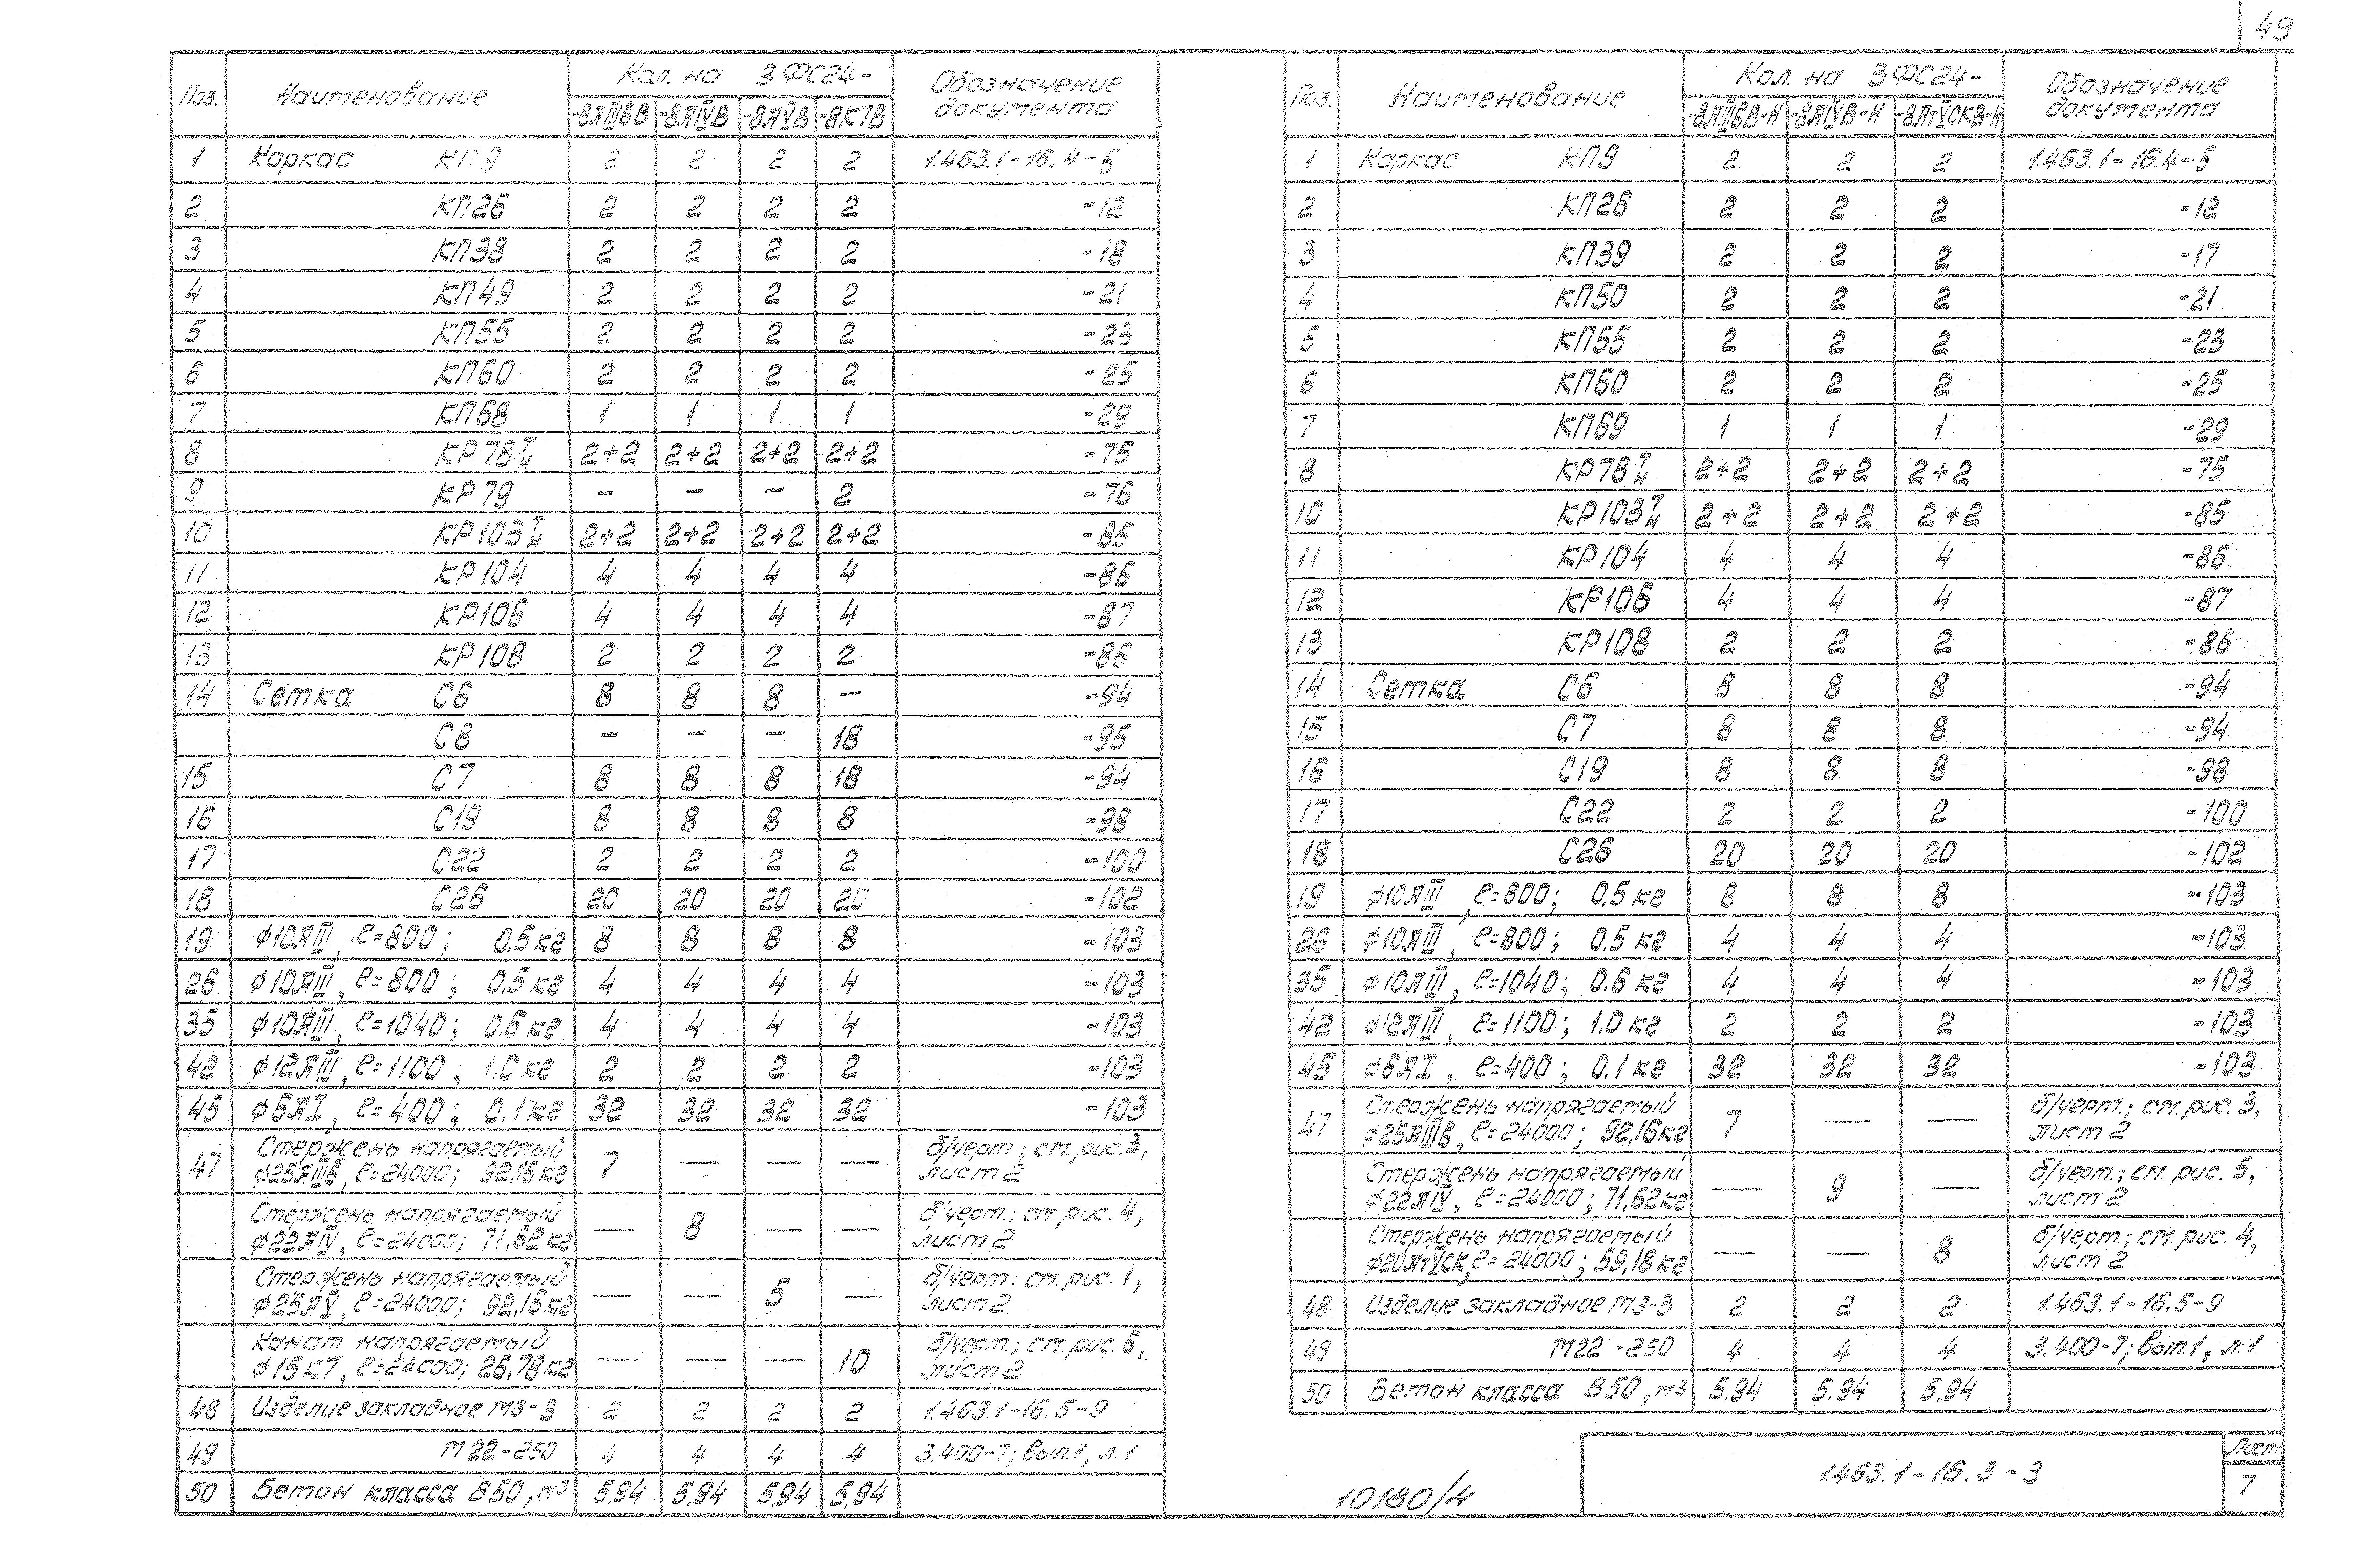 49
Поз. Наименование Кол. на 3ФС24- Обозначение документа
-8АIIIвВ -8АIVВ -8АVВ -8К7В
1 Каркас КП9 2 2 2 2 1.463.1-16.4-5
2 КП26 2 2 2 2 -12
3 КП38 2 2 2 2 -18
4 КП49 2 2 2 2 -21
5 КП55 2 2 2 2 -23
6 КП60 2 2 2 2 -25
7 КП68 1 1 1 1 -29
8 КР78Т/Н 2+2 2+2 2+2 2+2 -75
9 КР79 — — — 2 -76
10 КР103Т/Н 2+2 2+2 2+2 2+2 -85
11 КР104 4 4 4 4 -86
12 КР106 4 4 4 4 -87
13 КР108 2 2 2 2 -86
14 Сетка С6 8 8 8 — -94
С8 — — — 18 -95
15 С7 8 8 8 18 -94
16 С19 8 8 8 8 -98
17 С22 2 2 2 2 -100
18 С26 20 20 20 20 -102
19 ф10АIII, ℓ=800; 0.5кг 8 8 8 8 -103
26 ф10АIII, ℓ=800; 0.5кг 4 4 4 4 -103
35 ф10АIII, ℓ=1040; 0.6кг 4 4 4 4 -103
42 ф12АIII, ℓ=1100; 1.0кг 2 2 2 2 -103
45 ф6АI, ℓ=400; 0.1кг 32 32 32 32 -103
47 Стержень напрягаемый 7 — — — б/черт.; см. рис. 3,
ф25АIIIв, ℓ=24000; 92,16кг лист 2
Стержень напрягаемый — 8 — — б/черт.; см. рис. 4,
ф22АIV, ℓ=24000; 71,62кг лист 2
Стержень напрягаемый — — 5 — б/черт. см. рис. 1,
ф25АV, ℓ=24000; 92,16кг лист 2
Канат напрягаемый — — — 10 б/черт.; см. рис. 6,
ф15К7, ℓ=24000; 26,78кг лист 2
48 Изделие закладное М3-3 2 2 2 2 1.463.1-16.5-9
49 М22-250 4 4 4 4 3.400-7; вып.1, л.1
50 Бетон класса В50, м3 5.94 5.94 5.94 5.94
Поз. Наименование Кол. на 3ФС24- Обозначение документа
-8АIIIвВ-Н -8АIVВ-Н -8АтVСКВ-Н
1 Каркас КП9 2 2 2 1.463.1-16.4-5
2 КП26 2 2 2 -12
3 КП39 2 2 2 -17
4 КП50 2 2 2 -21
5 КП55 2 2 2 -23
6 КП60 2 2 2 -25
7 КП69 1 1 1 -29
8 КР78Т/Н 2+2 2+2 2+2 -75
10 КР103Т/Н 2+2 2+2 2+2 -85
11 КР104 4 4 4 -86
12 КР106 4 4 4 -87
13 КР108 2 2 2 -86
14 Сетка С6 8 8 8 -94
15 С7 8 8 8 -94
16 С19 8 8 8 -98
17 С22 2 2 2 -100
18 С26 20 20 20 -102
19 ф10АIII, ℓ=800; 0.5кг 8 8 8 -103
26 ф10АIII, ℓ=800; 0.5кг 4 4 4 -103
35 ф10АIII, ℓ=1040; 0.6кг 4 4 4 -103
42 ф12АIII, ℓ=1100; 1.0кг 2 2 2 -103
45 ф6АI, ℓ=400; 0.1кг 32 32 32 -103
47 Стержень напрягаемый 7 — — б/черт.; см. рис. 3,
ф25АIIIв, ℓ=24000; 92,16кг лист 2
Стержень напрягаемый — 9 — б/черт.; см. рис. 5,
ф22АIV, ℓ=24000; 71,62кг лист 2
Стержень напрягаемый — — 8 б/черт.; см. рис. 4,
ф20АтVСК, ℓ=24000; 59,18кг лист 2
48 Изделие закладное М3-3 2 2 2 1.463.1-16.5-9
49 М22-250 4 4 4 3.400-7; вып.1, л.1
50 Бетон класса В50, м3 5.94 5.94 5.94
10180/4
1.463.1-16.3-3
Лист
7